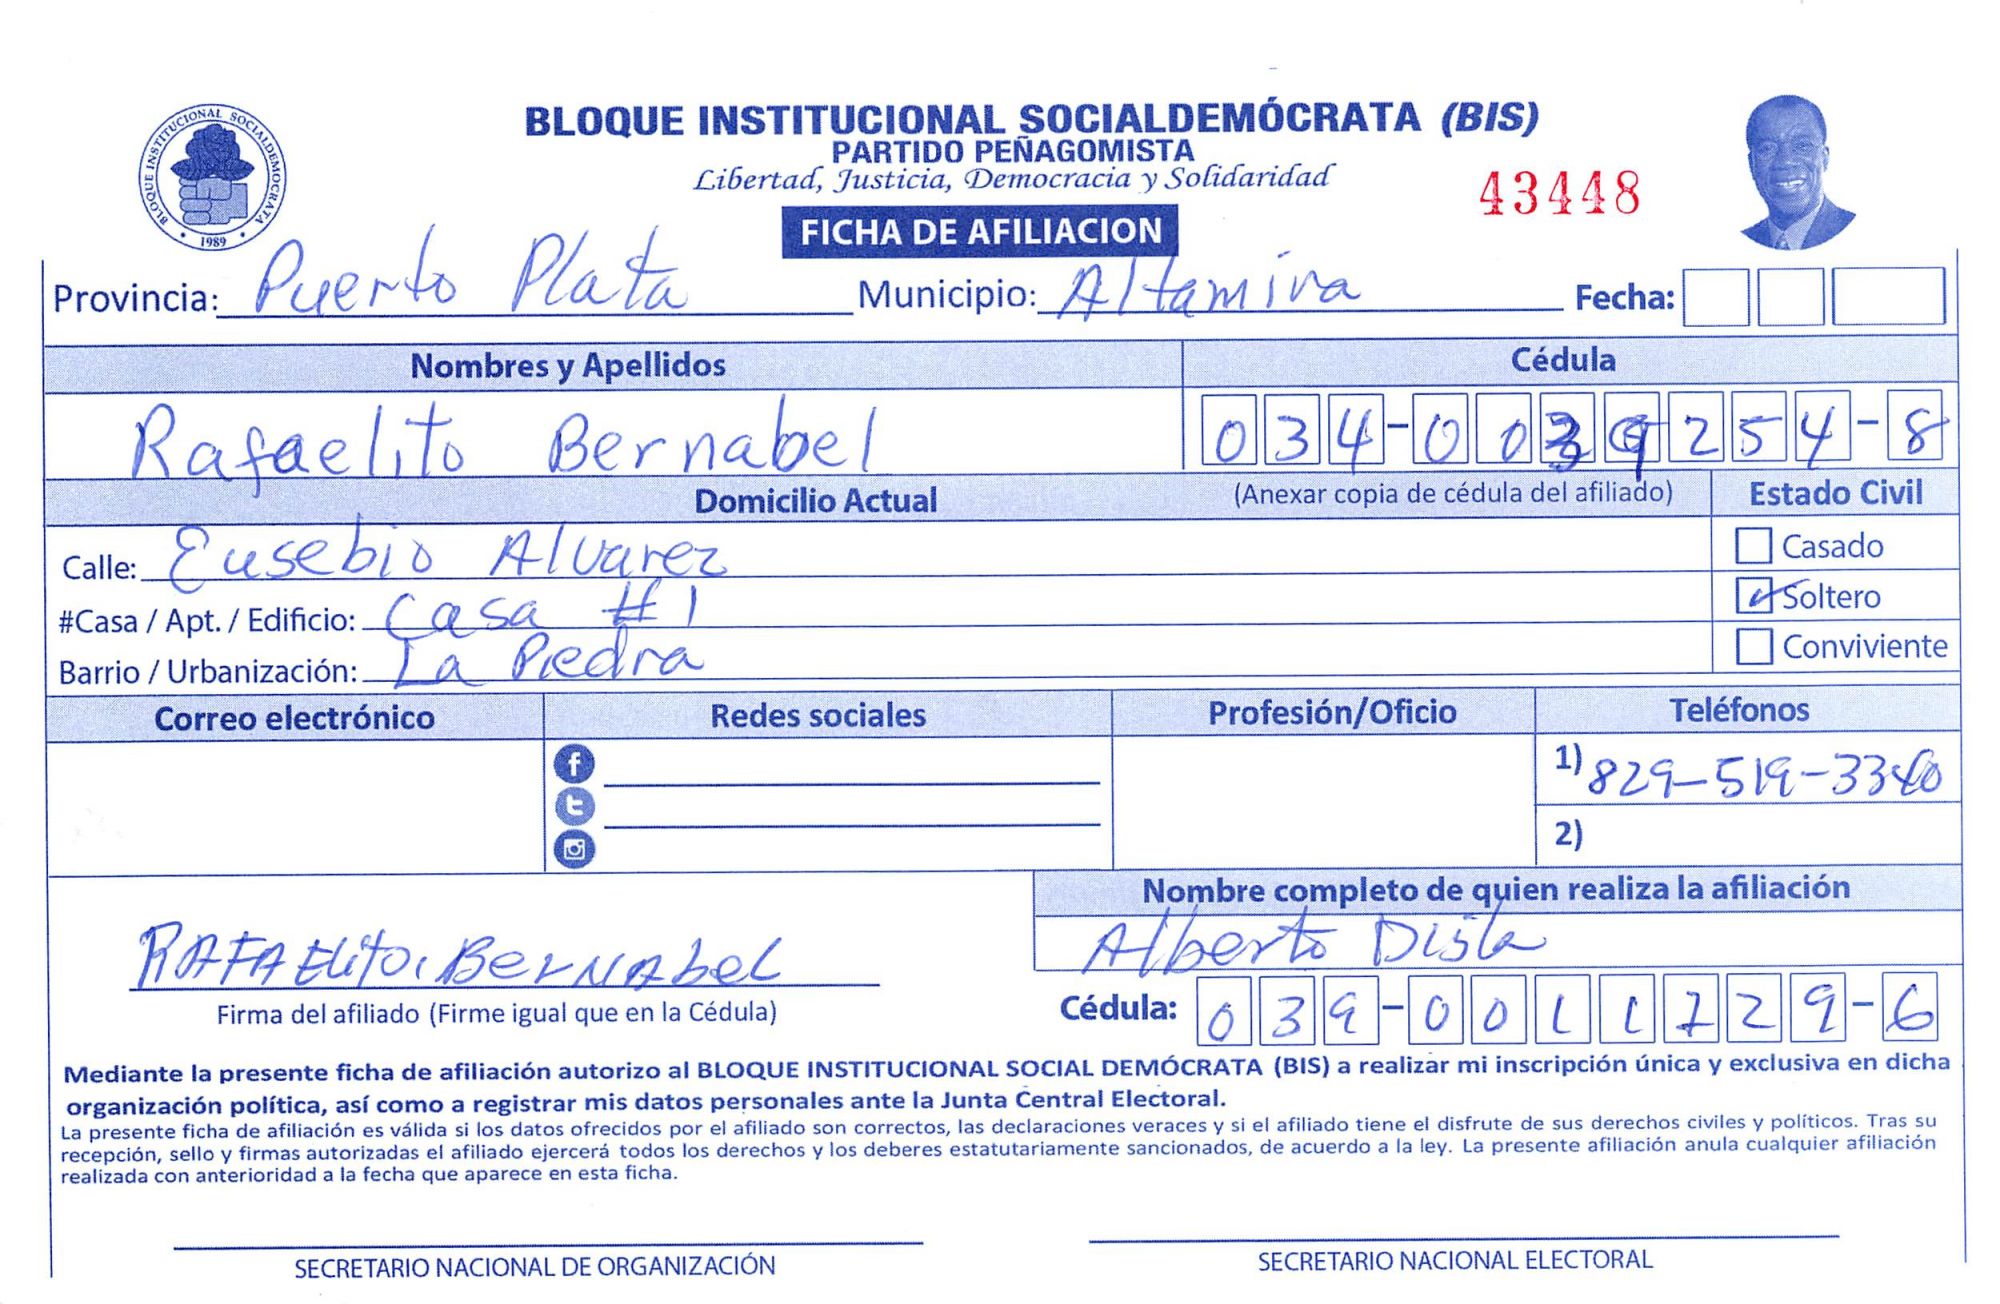 BLOQUE INSTITUCIONAL SOCIALDEMOCRATA
1989
BLOQUE INSTITUCIONAL SOCIALDEMÓCRATA (BIS)
PARTIDO PEÑAGOMISTA
Libertad, Justicia, Democracia y Solidaridad
43448
FICHA DE AFILIACION
Provincia: Puerto Plata Municipio: Altamira Fecha:
Nombres y Apellidos Cédula
Rafaelito Bernabel 034-0039254-8
Domicilio Actual (Anexar copia de cédula del afiliado) Estado Civil
Calle: Eusebio Alvarez Casado
#Casa / Apt. / Edificio: Casa #1 Soltero
Barrio / Urbanización: La Piedra Conviviente
Correo electrónico Redes sociales Profesión/Oficio Teléfonos
1) 829-519-3340
2)
Nombre completo de quien realiza la afiliación
Alberto Disla
RAFAElito. BerNAbeL
Firma del afiliado (Firme igual que en la Cédula) Cédula: 039-0011729-6
Mediante la presente ficha de afiliación autorizo al BLOQUE INSTITUCIONAL SOCIAL DEMÓCRATA (BIS) a realizar mi inscripción única y exclusiva en dicha
organización política, así como a registrar mis datos personales ante la Junta Central Electoral.
La presente ficha de afiliación es válida si los datos ofrecidos por el afiliado son correctos, las declaraciones veraces y si el afiliado tiene el disfrute de sus derechos civiles y políticos. Tras su
recepción, sello y firmas autorizadas el afiliado ejercerá todos los derechos y los deberes estatutariamente sancionados, de acuerdo a la ley. La presente afiliación anula cualquier afiliación
realizada con anterioridad a la fecha que aparece en esta ficha.
SECRETARIO NACIONAL DE ORGANIZACIÓN SECRETARIO NACIONAL ELECTORAL